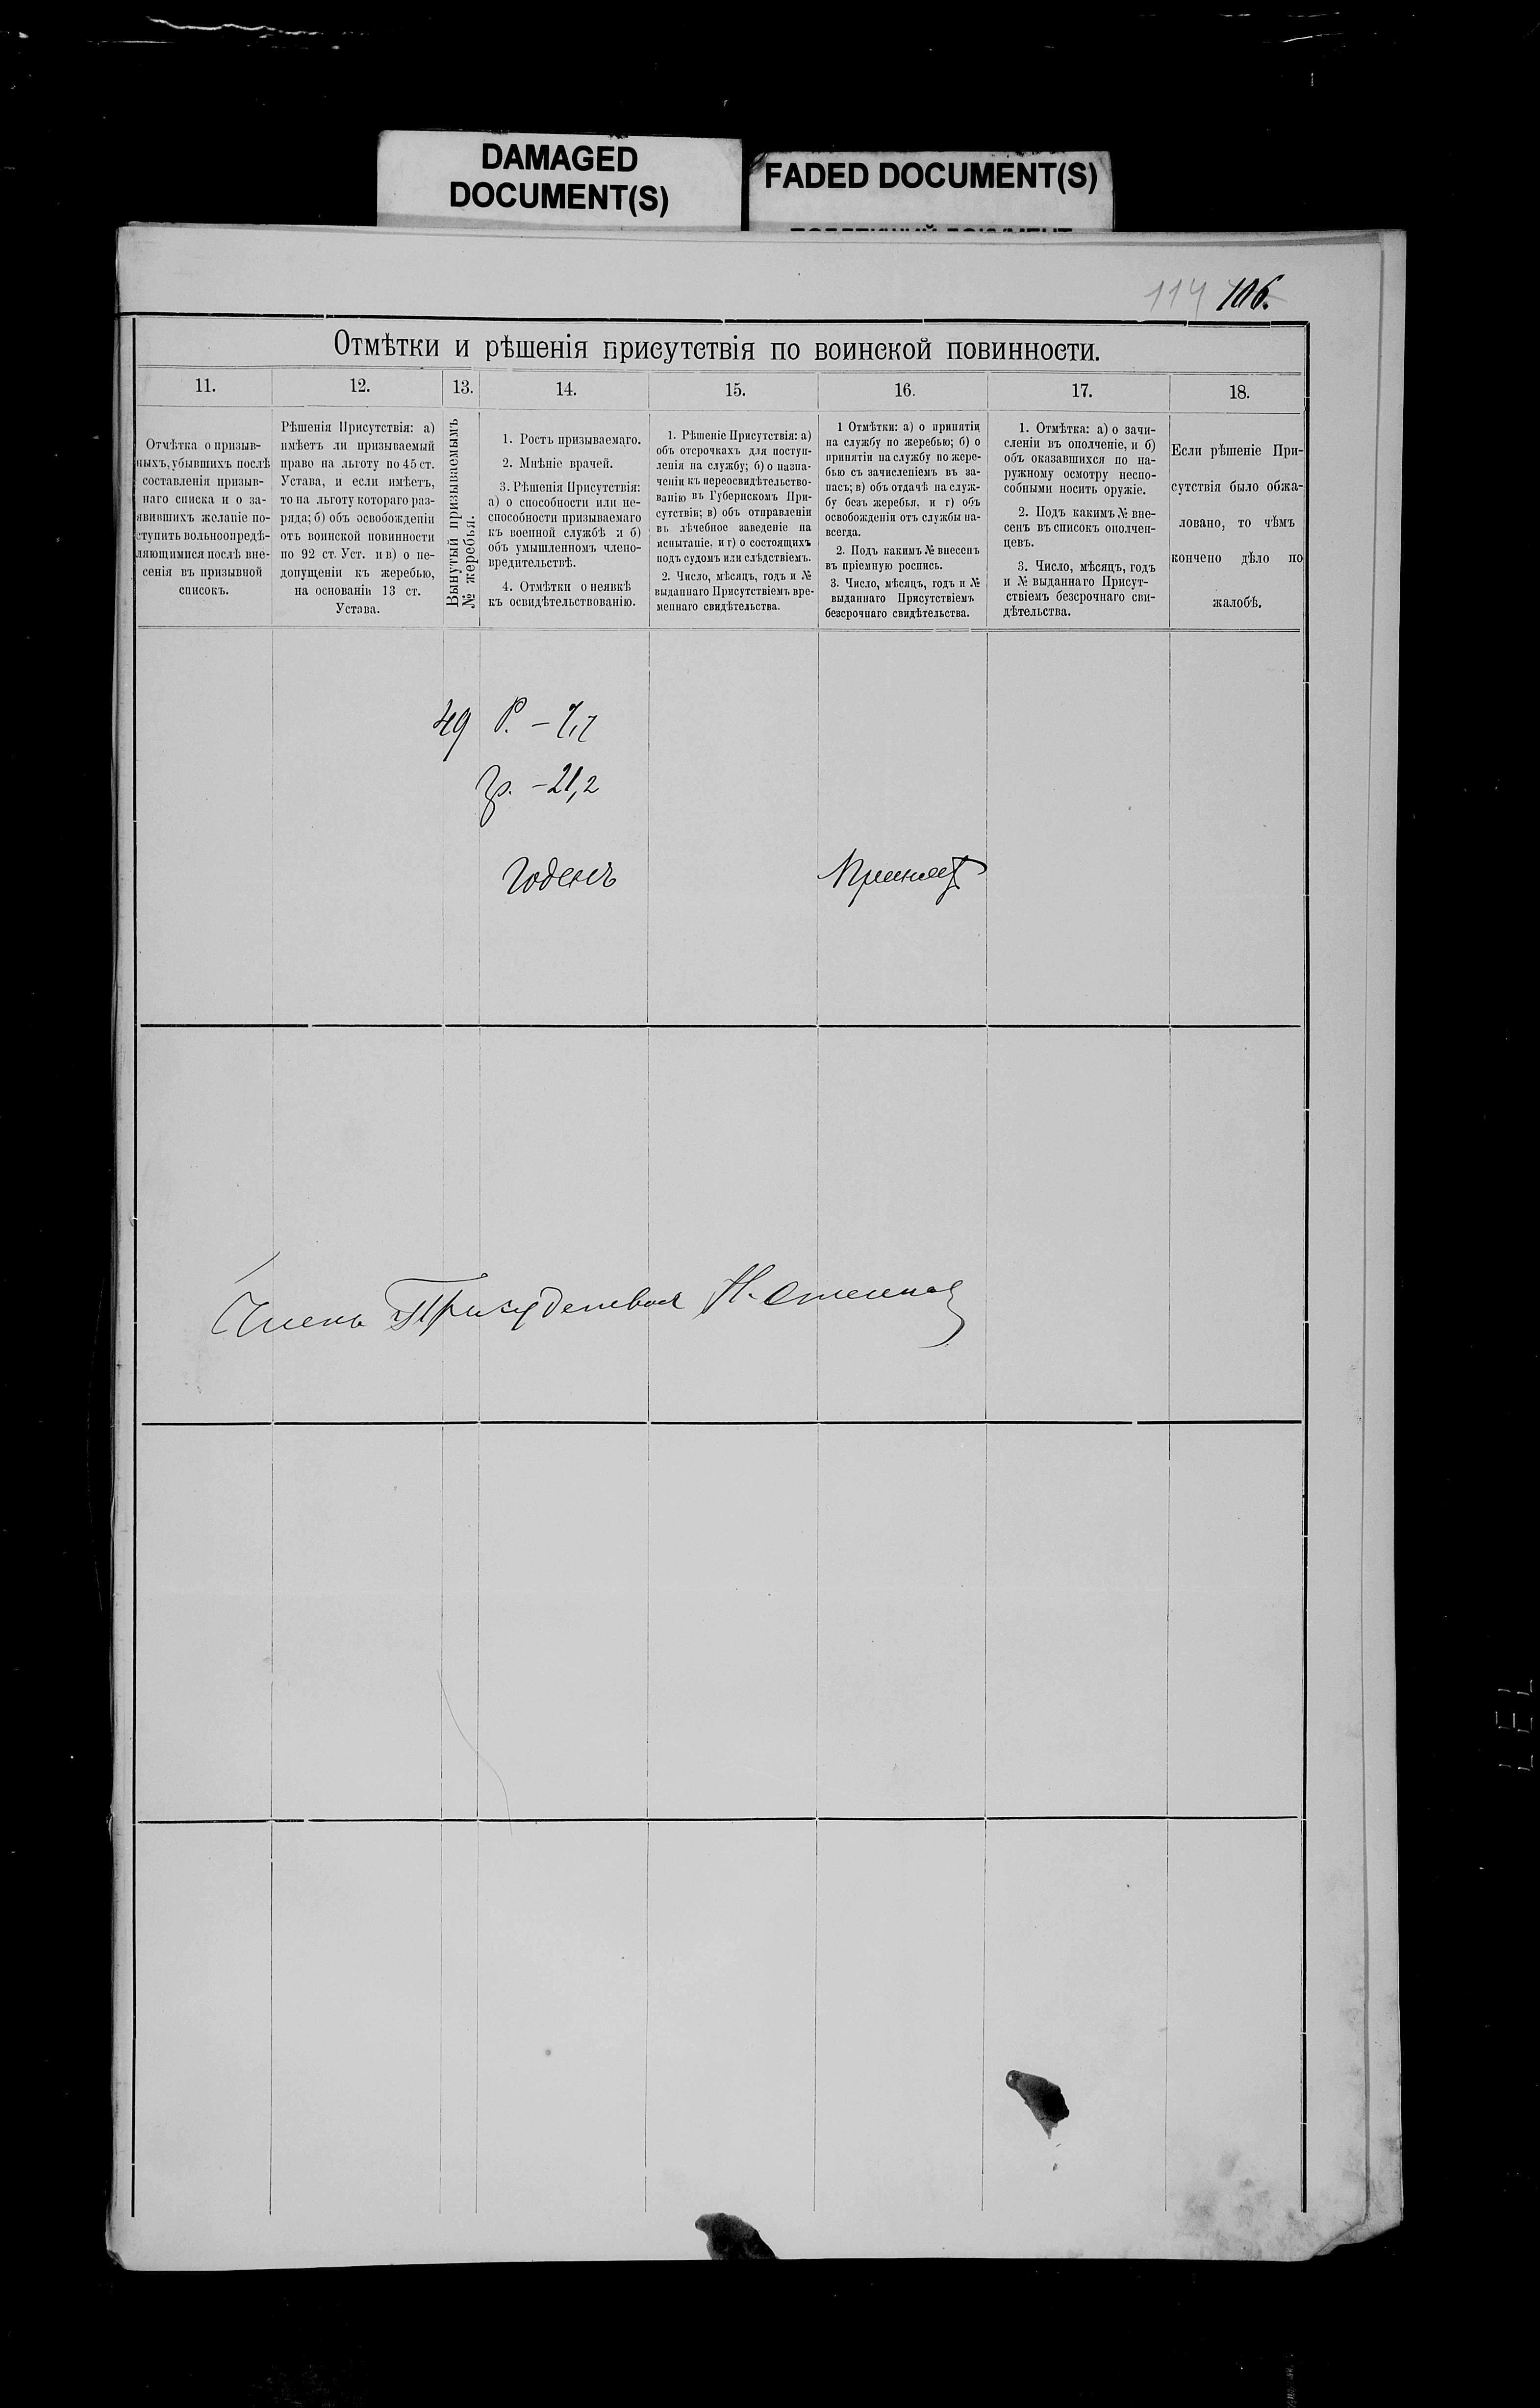 DAMAGED
DOCUMENT(S)
FADED DOCUMENT(S)
114 106.
Отмѣтки и рѣшенія присутствія по воинской повинности.
11. 12. 13. 14. 15. 16. 17. 18.
Отмѣтка о призыв-
ныхъ, убывшихъ послѣ
составленія призыв-
наго списка и о за-
явившихъ желаніе по-
ступить вольноопредѣ-
ляющимися послѣ вне-
сенія въ призывной
списокъ.
Рѣшенія Присутствія: а)
имѣетъ ли призываемый
право на льготу по 45 ст.
Устава, и если имѣетъ,
то на льготу котораго раз-
ряда; б) объ освобожденіи
отъ воинской повинности
по 92 ст. Уст. и в) о не-
допущеніи къ жеребью,
на основаніи 13 ст.
Устава.
Вынутый призываемымъ
№ жеребья.
1. Ростъ призываемаго.
2. Мнѣніе врачей.
3. Рѣшенія Присутствія:
а) о способности или не-
способности призываемаго
къ военной службѣ и б)
объ умышленномъ члено-
вредительствѣ.
4. Отмѣтки о неявкѣ
къ освидѣтельствованію.
1. Рѣшеніе Присутствія: а)
объ отсрочкахъ для поступ-
ленія на службу; б) о назна-
ченіи къ переосвидѣтельство-
ванію въ Губернскомъ При-
сутствіи; в) объ отправленіи
въ лѣчебное заведеніе на
испытаніе, и г) о состоящихъ
подъ судомъ или слѣдствіемъ.
2. Число, мѣсяцъ, годъ и №
выданнаго Присутствіемъ вре-
меннаго свидѣтельства.
1 Отмѣтки: а) о принятіи
на службу по жеребью; б) о
принятіи на службу по жере-
бью съ зачисленіемъ въ за-
пасъ; в) объ отдачѣ на служ-
бу безъ жеребья, и г) объ
освобожденіи отъ службы на-
всегда.
2. Подъ какимъ № внесенъ
въ пріемную роспись.
3. Число, мѣсяцъ, годъ и №
выданнаго Присутствіемъ
безсрочнаго свидѣтельства.
1. Отмѣтка: а) о зачи-
сленіи въ ополченіе, и б)
объ оказавшихся по на-
ружному осмотру неспо-
собными носить оружіе.
2. Подъ какимъ № вне-
сенъ въ списокъ ополчен-
цевъ.
3. Число, мѣсяцъ, годъ
и № выданнаго Присут-
ствіемъ безсрочнаго сви-
дѣтельства.
Если рѣшеніе При-
сутствія было обжа-
ловано, то чѣмъ
кончено дѣло по
жалобѣ.
49 Р. – 7,7
Гр. – 21,2
Годенъ
Принят
Членъ Присутствія Н.